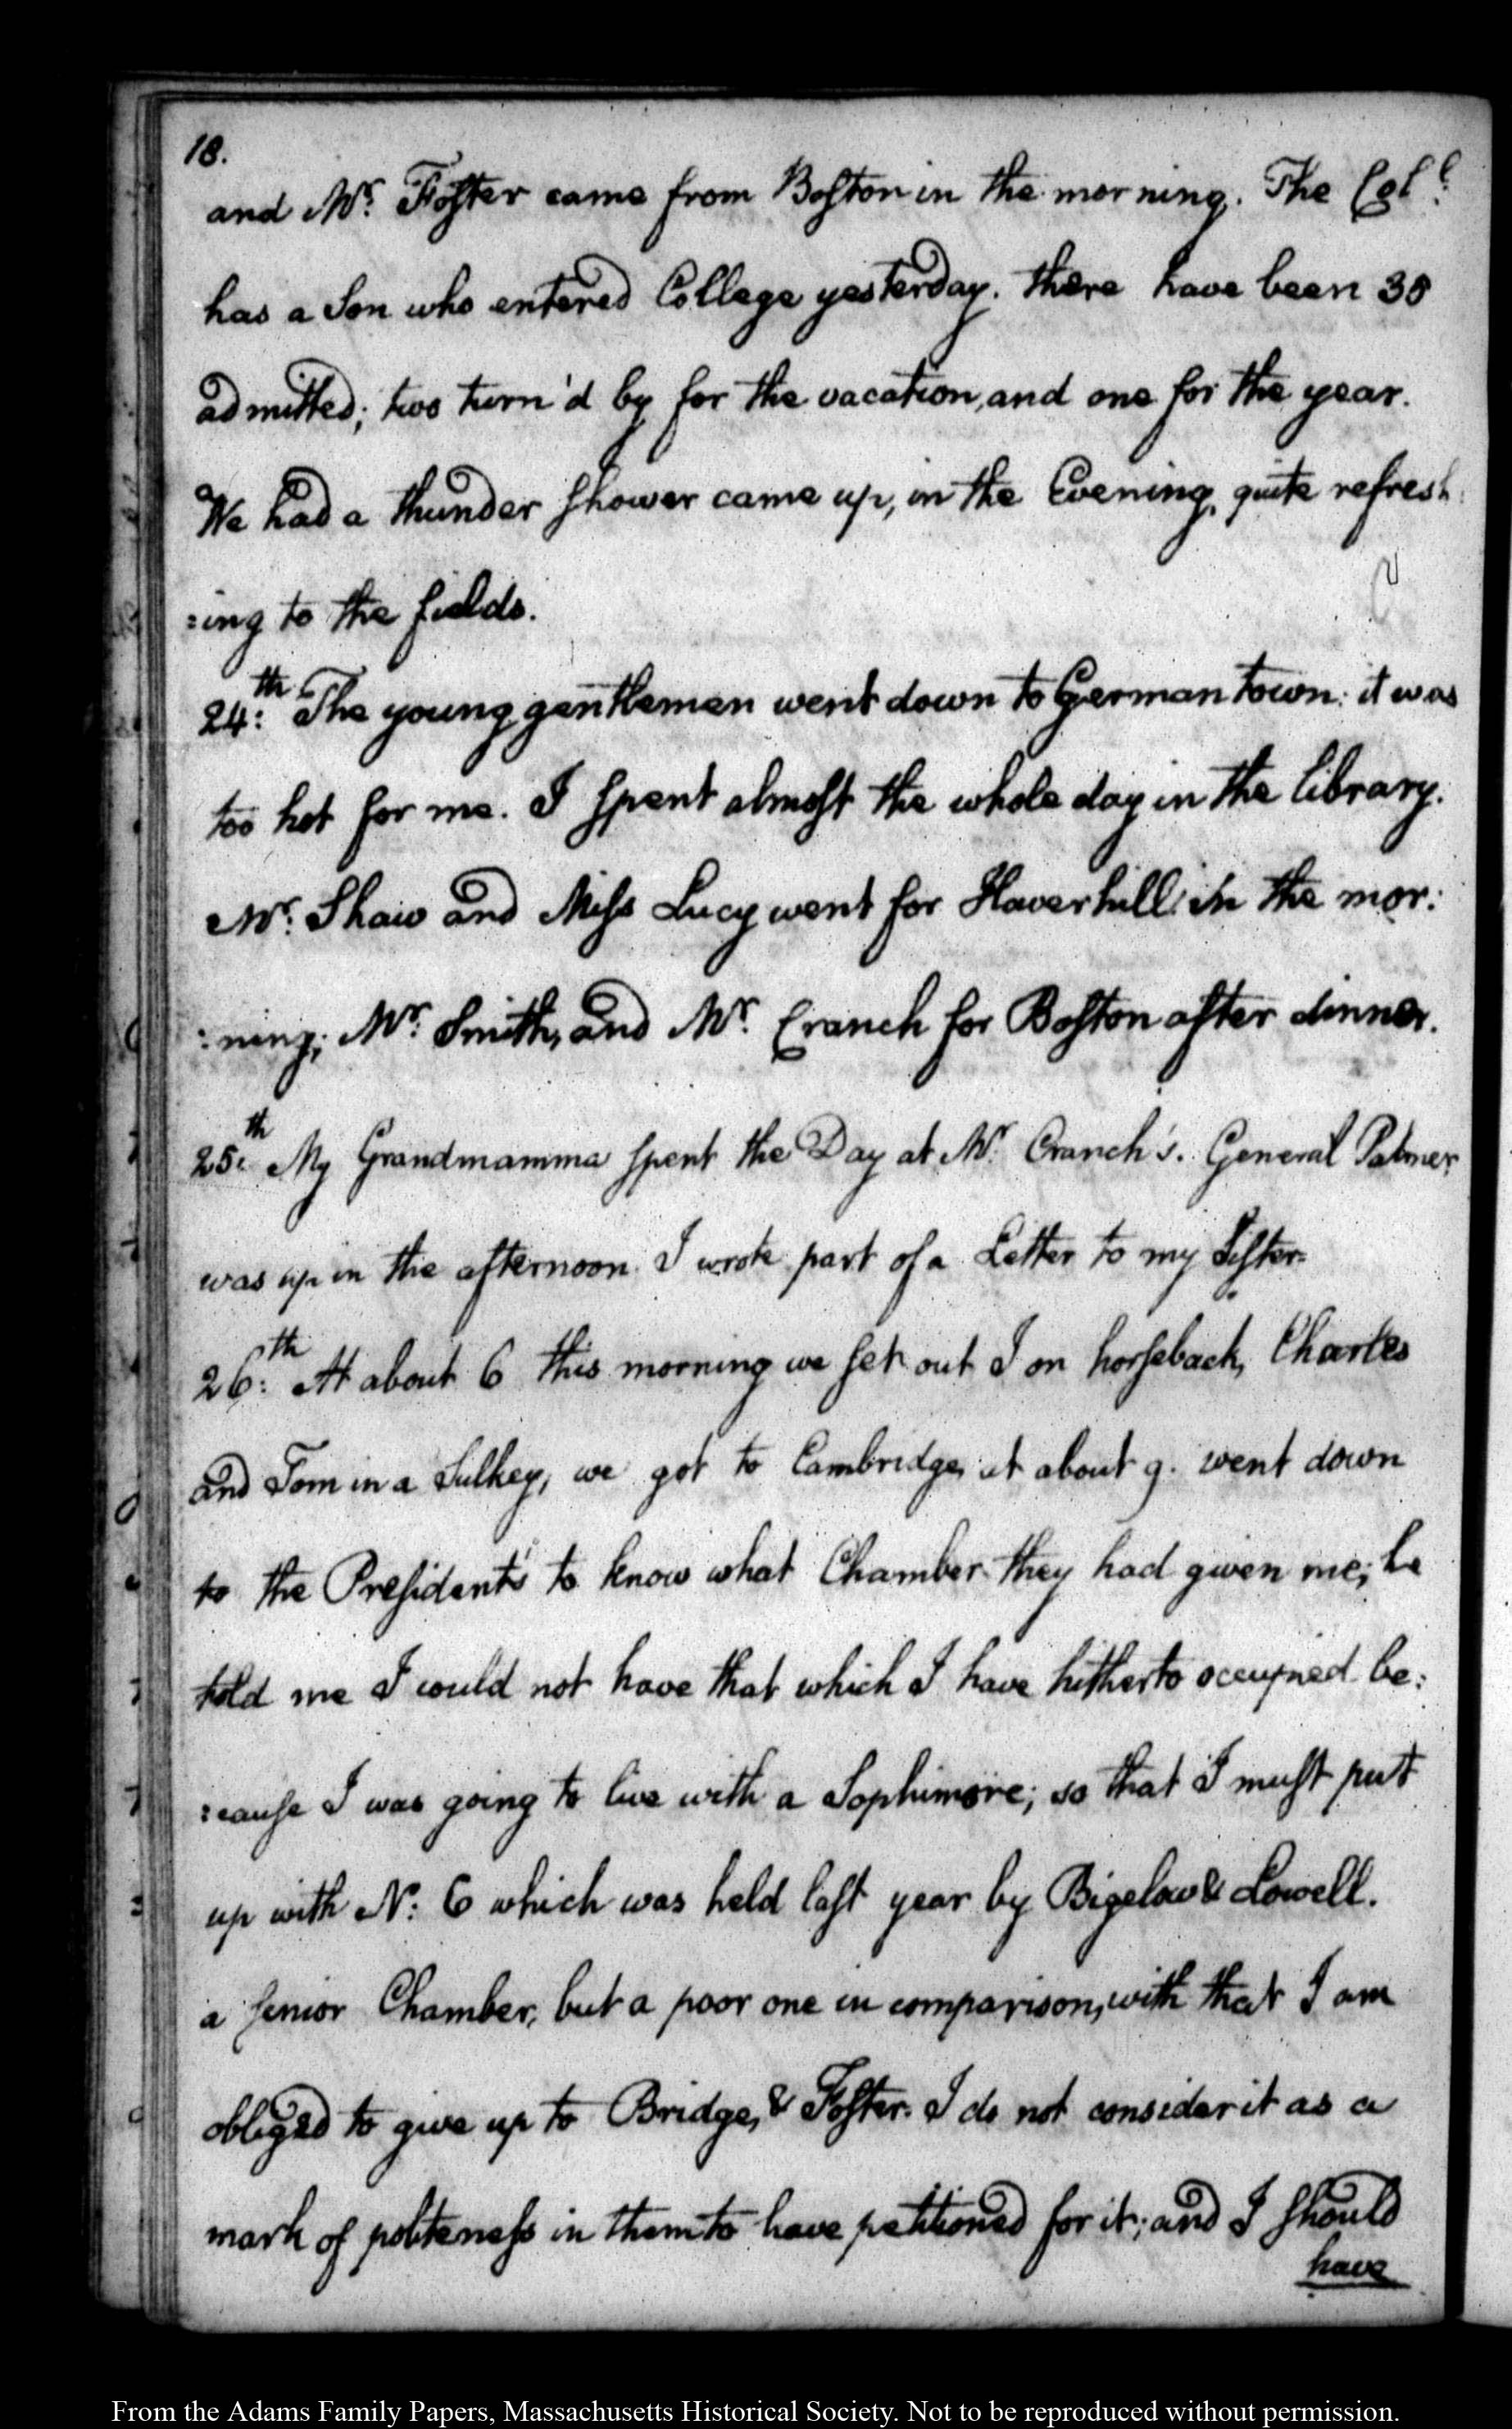 18.
and Mr. Foster came from Boston in the morning. The Col.
has a Son who entered College yesterday. there have been 38
admitted; two turn'd by for the vacation, and one for the year.
We had a thunder shower came up, in the Evening, quite refresh
:ing to the fields.
24:th The young gentlemen went down to Germantown: it was
too hot for me. I spent almost the whole day in the library.
Mr. Shaw and Miss Lucy went for Haverhill in the mor:
:ning; Mr. Smith, and Mr. Cranch for Boston after dinner.
25:th My Grandmamma spent the Day at Mr. Cranch's. General Palmer
was up in the afternoon. I wrote part of a Letter to my Sister.
26:th At about 6 this morning we set out I on horseback, Charles
and Tom in a Sulkey, we got to Cambridge, at about 9. went down
to the President's to know what Chamber they had given me; he
told me I would not have that which I have hitherto occupied be:
:cause I was going to live with a Sophimore; so that I must put
up with N: 6 which was held last year by Bigelow & Lowell.
a senior Chamber, but a poor one in comparison, with that I am
obliged to give up to Bridge, & Foster. I do not consider it as a
mark of politeness in them to have petitioned for it; and I should
have
From the Adams Family Papers, Massachusetts Historical Society. Not to be reproduced without permission.